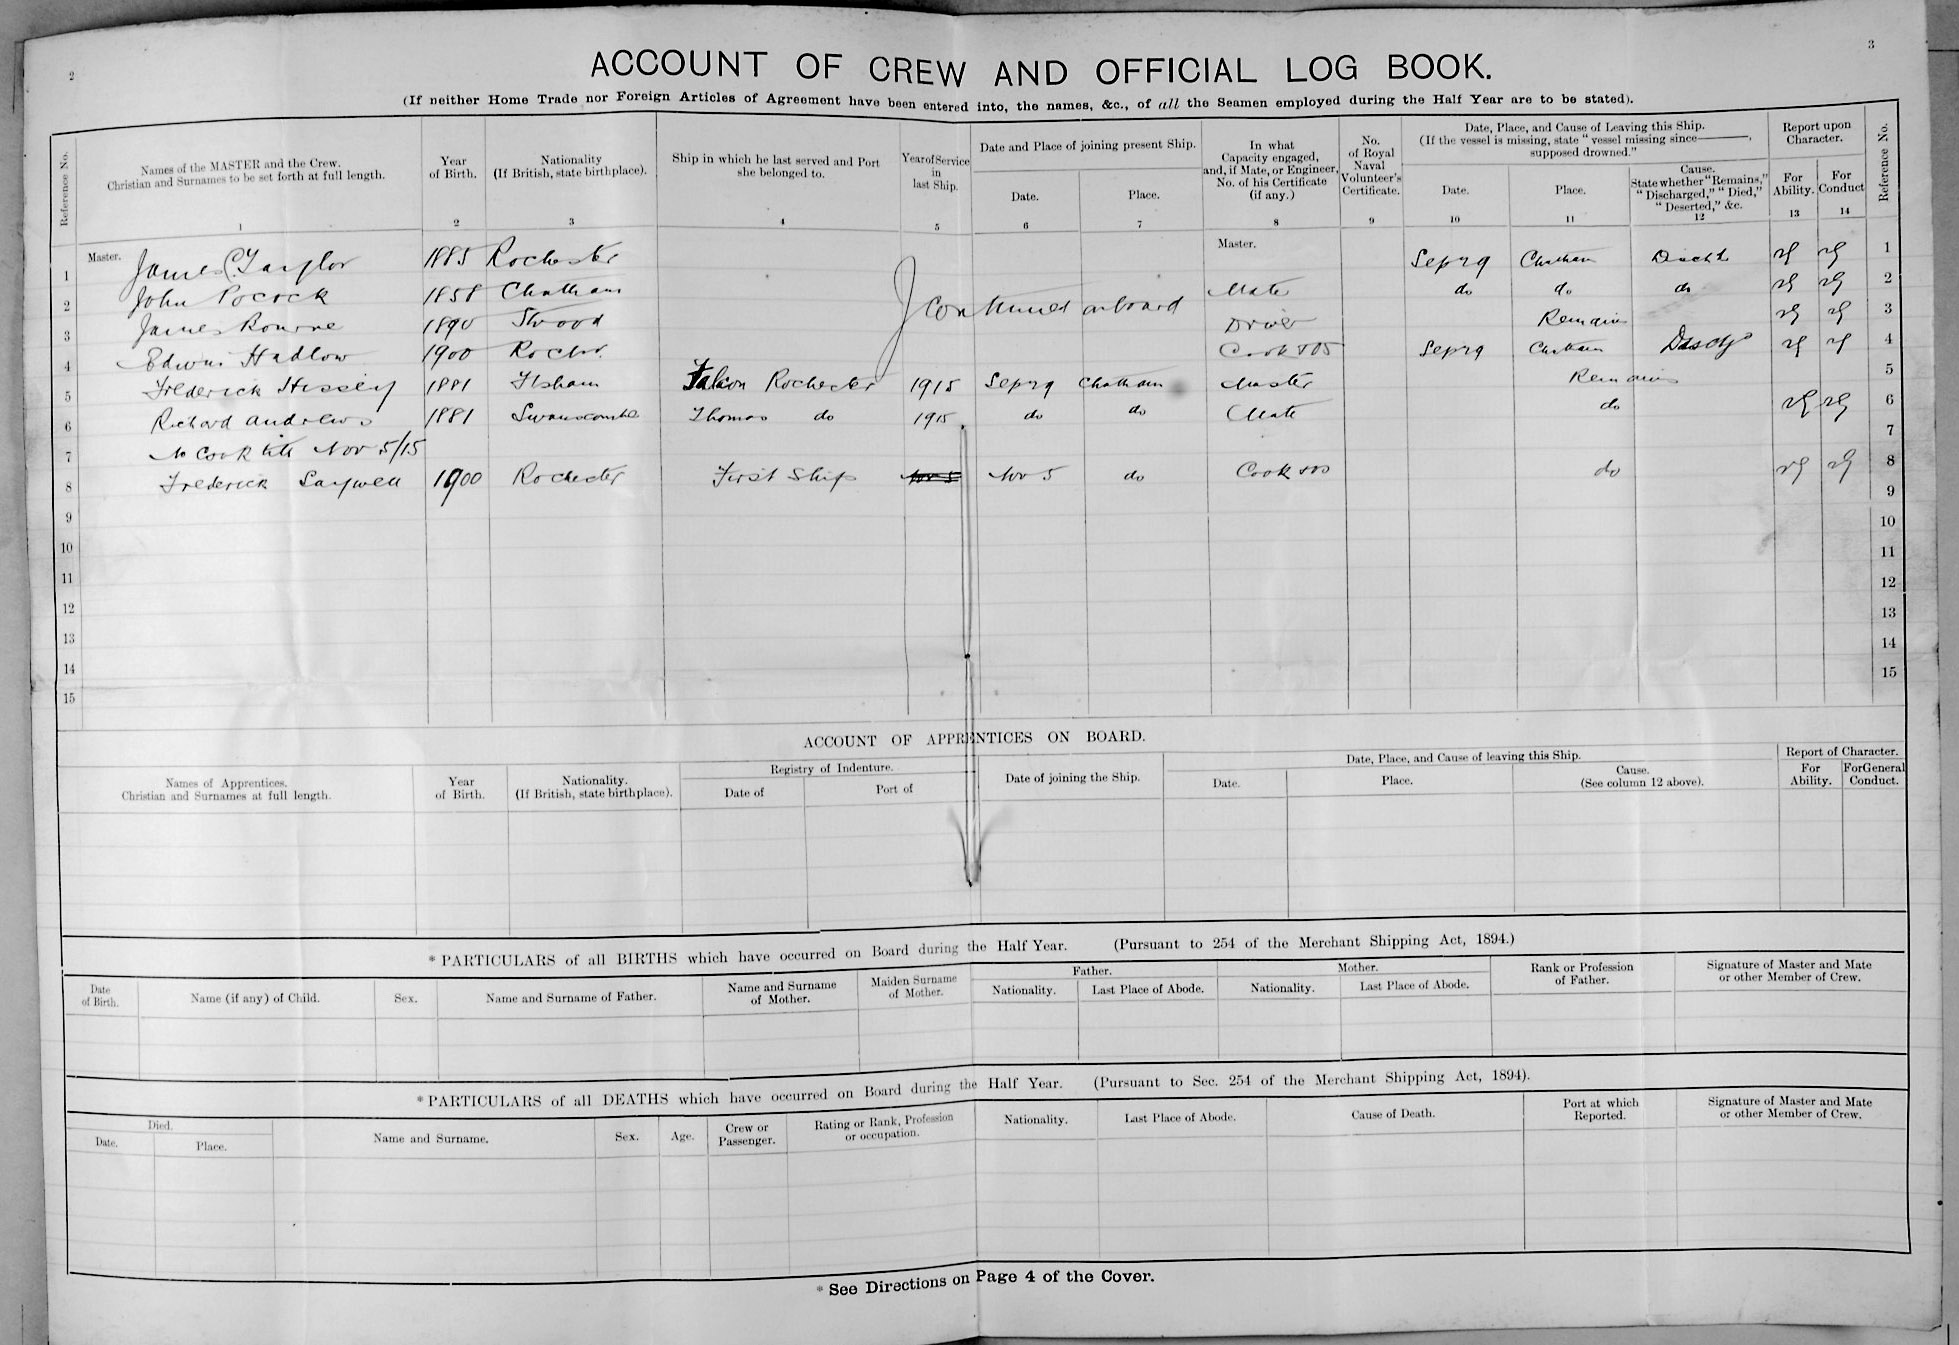 2
3
ACCOUNT OF CREW AND OFFICIAL LOG BOOK.
(If neither Home Trade nor Foreign Articles of Agreement have been entered into, the names, &c., of all the Seamen employed during the Half Year are to be stated).
Reference No.
Names of the MASTER and the Crew. Christian and Surnames to be set forth at full length.
Year of Birth.
Nationality (If British, state birthplace).
Ship in which he last served and Port she belonged to.
Year of Service in last Ship.
Date and Place of joining present Ship.
Date.
Place.
In what Capacity engaged, and, if Mate, or Engineer, No. of his Certificate (if any.)
No. of Royal Naval Volunteer's Certificate.
Date, Place, and Cause of Leaving this Ship.
(If the vessel is missing, state "vessel missing since———, supposed drowned."
Date.
Place.
Cause. State whether "Remains," "Discharged," "Died," "Deserted," &c.
Report upon Character.
For Ability.
For Conduct
Reference No.
1 2 3 4 5 6 7 8 9 10 11 12 13 14
1 Master. James C. Taylor 1885 Rochester Master. Sep 29 Chatham Discht VG VG 1
2 John Pocock 1858 Chatham Continued onboard Mate do do do VG VG 2
3 James Bourne 1890 Strood Driver Remains VG VG 3
4 Edwin Hadlow 1900 Rochr. Cook &OS Sep 29 Chatham Dischg VG VG 4
5 Frederick Hissey 1881 Falcon Rochester 1915 Sep 29 Chatham Master Remains 5
6 Richard Andrews 1881 Swanscombe Thomas do 1915 do do Mate do VG VG 6
7 No Cook till Nov 5/15 7
8 Frederick Saywell 1900 Rochester First Ship Nov 5 Nov 5 do Cook &OS do VG VG 8
9 9
10 10
11 11
12 12
13 13
14 14
15 15
ACCOUNT OF APPRENTICES ON BOARD.
Names of Apprentices. Christian and Surnames at full length.
Year of Birth.
Nationality. (If British, state birthplace).
Registry of Indenture.
Date of
Port of
Date of joining the Ship.
Date, Place, and Cause of leaving this Ship.
Date.
Place.
Cause. (See column 12 above).
Report of Character.
For Ability.
For General Conduct.
* PARTICULARS of all BIRTHS which have occurred on Board during the Half Year. (Pursuant to 254 of the Merchant Shipping Act, 1894.)
Date of Birth.
Name (if any) of Child.
Sex.
Name and Surname of Father.
Name and Surname of Mother.
Maiden Surname of Mother.
Father.
Nationality.
Last Place of Abode.
Mother.
Nationality.
Last Place of Abode.
Rank or Profession of Father.
Signature of Master and Mate or other Member of Crew.
* PARTICULARS of all DEATHS which have occurred on Board during the Half Year. (Pursuant to Sec. 254 of the Merchant Shipping Act, 1894).
Died.
Date.
Place.
Name and Surname.
Sex.
Age.
Crew or Passenger.
Rating or Rank, Profession or occupation.
Nationality.
Last Place of Abode.
Cause of Death.
Port at which Reported.
Signature of Master and Mate or other Member of Crew.
* See Directions on Page 4 of the Cover.